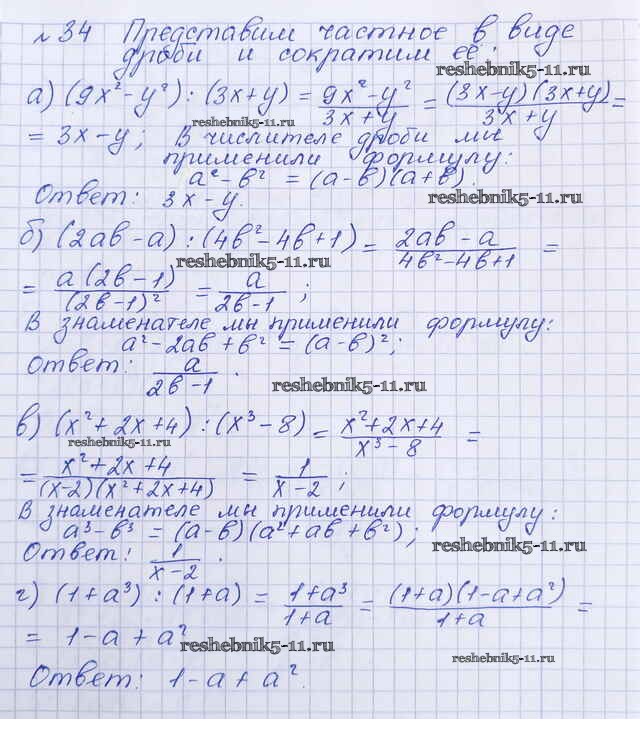 №34 Представим частное в виде
дроби и сократим её.
reshebnik5-11.ru
а) (9x² - y²) : (3x + y) = (9x² - y²)/(3x + y) = (3x - y)(3x + y)/(3x + y) =
reshebnik5-11.ru
= 3x - y; В числителе дроби мы
применили формулу:
a² - b² = (a - b)(a + b).
Ответ: 3x - y.
reshebnik5-11.ru
б) (2ab - a) : (4b² - 4b + 1) = (2ab - a)/(4b² - 4b + 1) =
reshebnik5-11.ru
= a(2b - 1)/(2b - 1)² = a/(2b - 1);
В знаменателе мы применили формулу:
a² - 2ab + b² = (a - b)²;
Ответ: a/(2b - 1).
reshebnik5-11.ru
в) (x² + 2x + 4) : (x³ - 8) = (x² + 2x + 4)/(x³ - 8) =
reshebnik5-11.ru
= (x² + 2x + 4)/((x - 2)(x² + 2x + 4)) = 1/(x - 2);
В знаменателе мы применили формулу:
a³ - b³ = (a - b)(a² + ab + b²);
Ответ: 1/(x - 2).
reshebnik5-11.ru
г) (1 + a³) : (1 + a) = (1 + a³)/(1 + a) = (1 + a)(1 - a + a²)/(1 + a) =
= 1 - a + a²
reshebnik5-11.ru
reshebnik5-11.ru
Ответ: 1 - a + a².